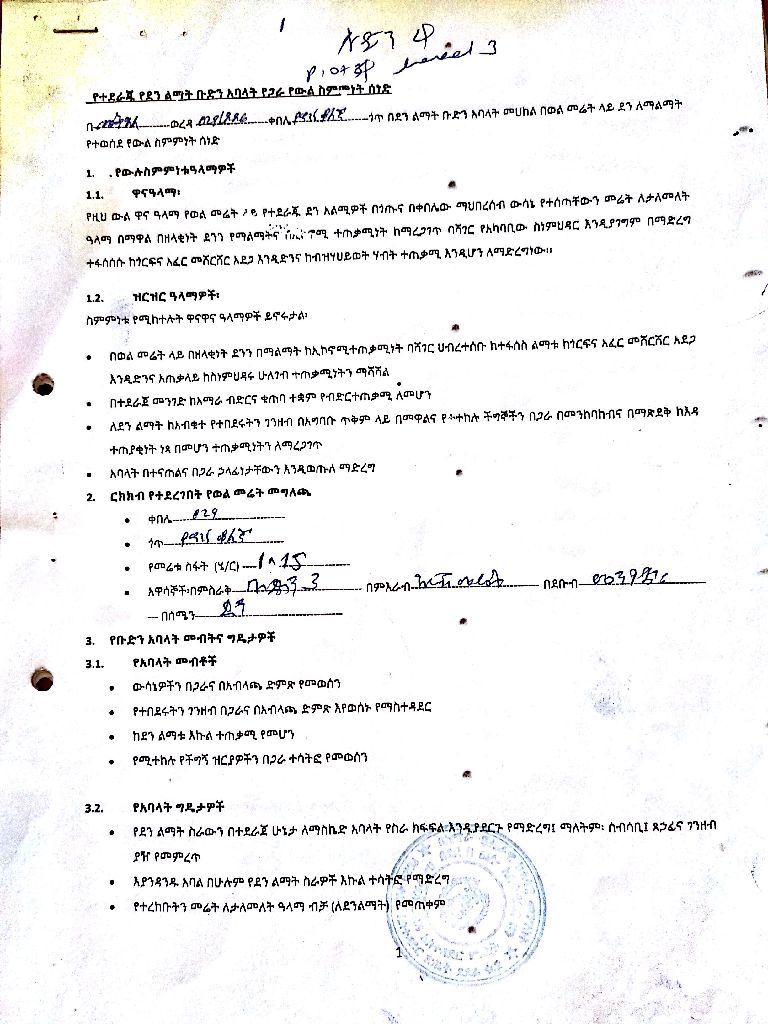 1
3
የተደራጁ የደን ልማት ቡድን አባላት የጋራ የውል ስምምነት ሰነድ
በ ወረዳ ቀበሌ ጎጥ በደን ልማት ቡድን አባላት መሀከል በወል መሬት ላይ ደን ለማልማት
የተወሰደ የውል ስምምነት ሰነድ
1. .የውሉስምምነቱዓላማዎች
1.1. ዋናዓላማ፡
የዚህ ውል ዋና ዓላማ የወል መሬት ላይ የተደራጁ ደን አልሚዎች በጎጡና በቀበሌው ማህበረሰብ ውሳኔ የተሰጣቸውን መሬት ለታለመለት
ዓላማ በማዋል በዘላቂነት ደንን የማልማትና ተጠቃሚነት ከማረጋገጥ ባሻገር የአካባቢው ስነምህዳር እንዲያገግም በማድረግ
ተፋሰሱ ከጎርፍና አፈር መሸርሸር አደጋ እንዲድንና ከብዝሃህይወት ሃብት ተጠቃሚ እንዲሆን ለማድረግነው፡፡
1.2. ዝርዝር ዓላማዎች፡
ስምምነቱ የሚከተሉት ዋናዋና ዓላማዎች ይኖሩታል፡
• በወል መሬት ላይ በዘላቂነት ደንን በማልማት ከኢኮኖሚተጠቃሚነት ባሻገር ህብረተሰቡ ከተፋሰስ ልማቱ ከጎርፍና አፈር መሸርሸር አደጋ
እንዲድንና አጠቃላይ ከስነምህዳሩ ሁለገብ ተጠቃሚነትን ማሻሻል
• በተደራጀ መንገድ ከአማራ ብድርና ቁጠባ ተቋም የብድርተጠቃሚ ለመሆን
• ለደን ልማት ከአብቁተ የተበደሩትን ገንዘብ በአግባቡ ጥቅም ላይ በመዋልና የተተከሉ ችግኞችን በጋራ በመንከባከብና በማጽደቅ ከእዳ
ተጠያቂነት ነጻ በመሆን ተጠቃሚነትን ለማረጋገጥ
• አባላት በተናጠልና በጋራ ኃላፊነታቸውን እንዲወጡለ ማድረግ
2. ርክክብ የተደረገበት የወል መሬት መግለጫ
• ቀበሌ 029
• ጎጥ
• የመሬቱ ስፋት (ሄ/ር) 1.15
• አዋሳኞች፡በምስራቅ በምእራብ በደቡብ
በሰሜን
3. የቡድን አባላት መብትና ግዴታዎች
3.1. የአባላት መብቶች
• ውሳኔዎችን በጋራና በአብላጫ ድምጽ የመወሰን
• የተበደሩትን ገንዘብ በጋራና በአብላጫ ድምጽ እየወሰኑ የማስተዳደር
• ከደን ልማቱ እኩል ተጠቃሚ የመሆን
• የሚተከሉ የችግኝ ዝርያዎችን በጋራ ተሳትፎ የመወሰን
3.2. የአባላት ግዴታዎች
• የደን ልማት ስራውን በተደራጀ ሁኔታ ለማስኬድ አባላት የስራ ክፍፍል እንዲያደርጉ የማድረግ፤ ማለትም፡ ሰብሳቢ፤ ጸኃፊና ገንዘብ
ያዥ የመምረጥ
• እያንዳንዱ አባል በሁሉም የደን ልማት ስራዎች እኩል ተሳትፎ የማድረግ
• የተረከቡትን መሬት ለታለመለት ዓላማ ብቻ (ለደንልማት) የመጠቀም
1